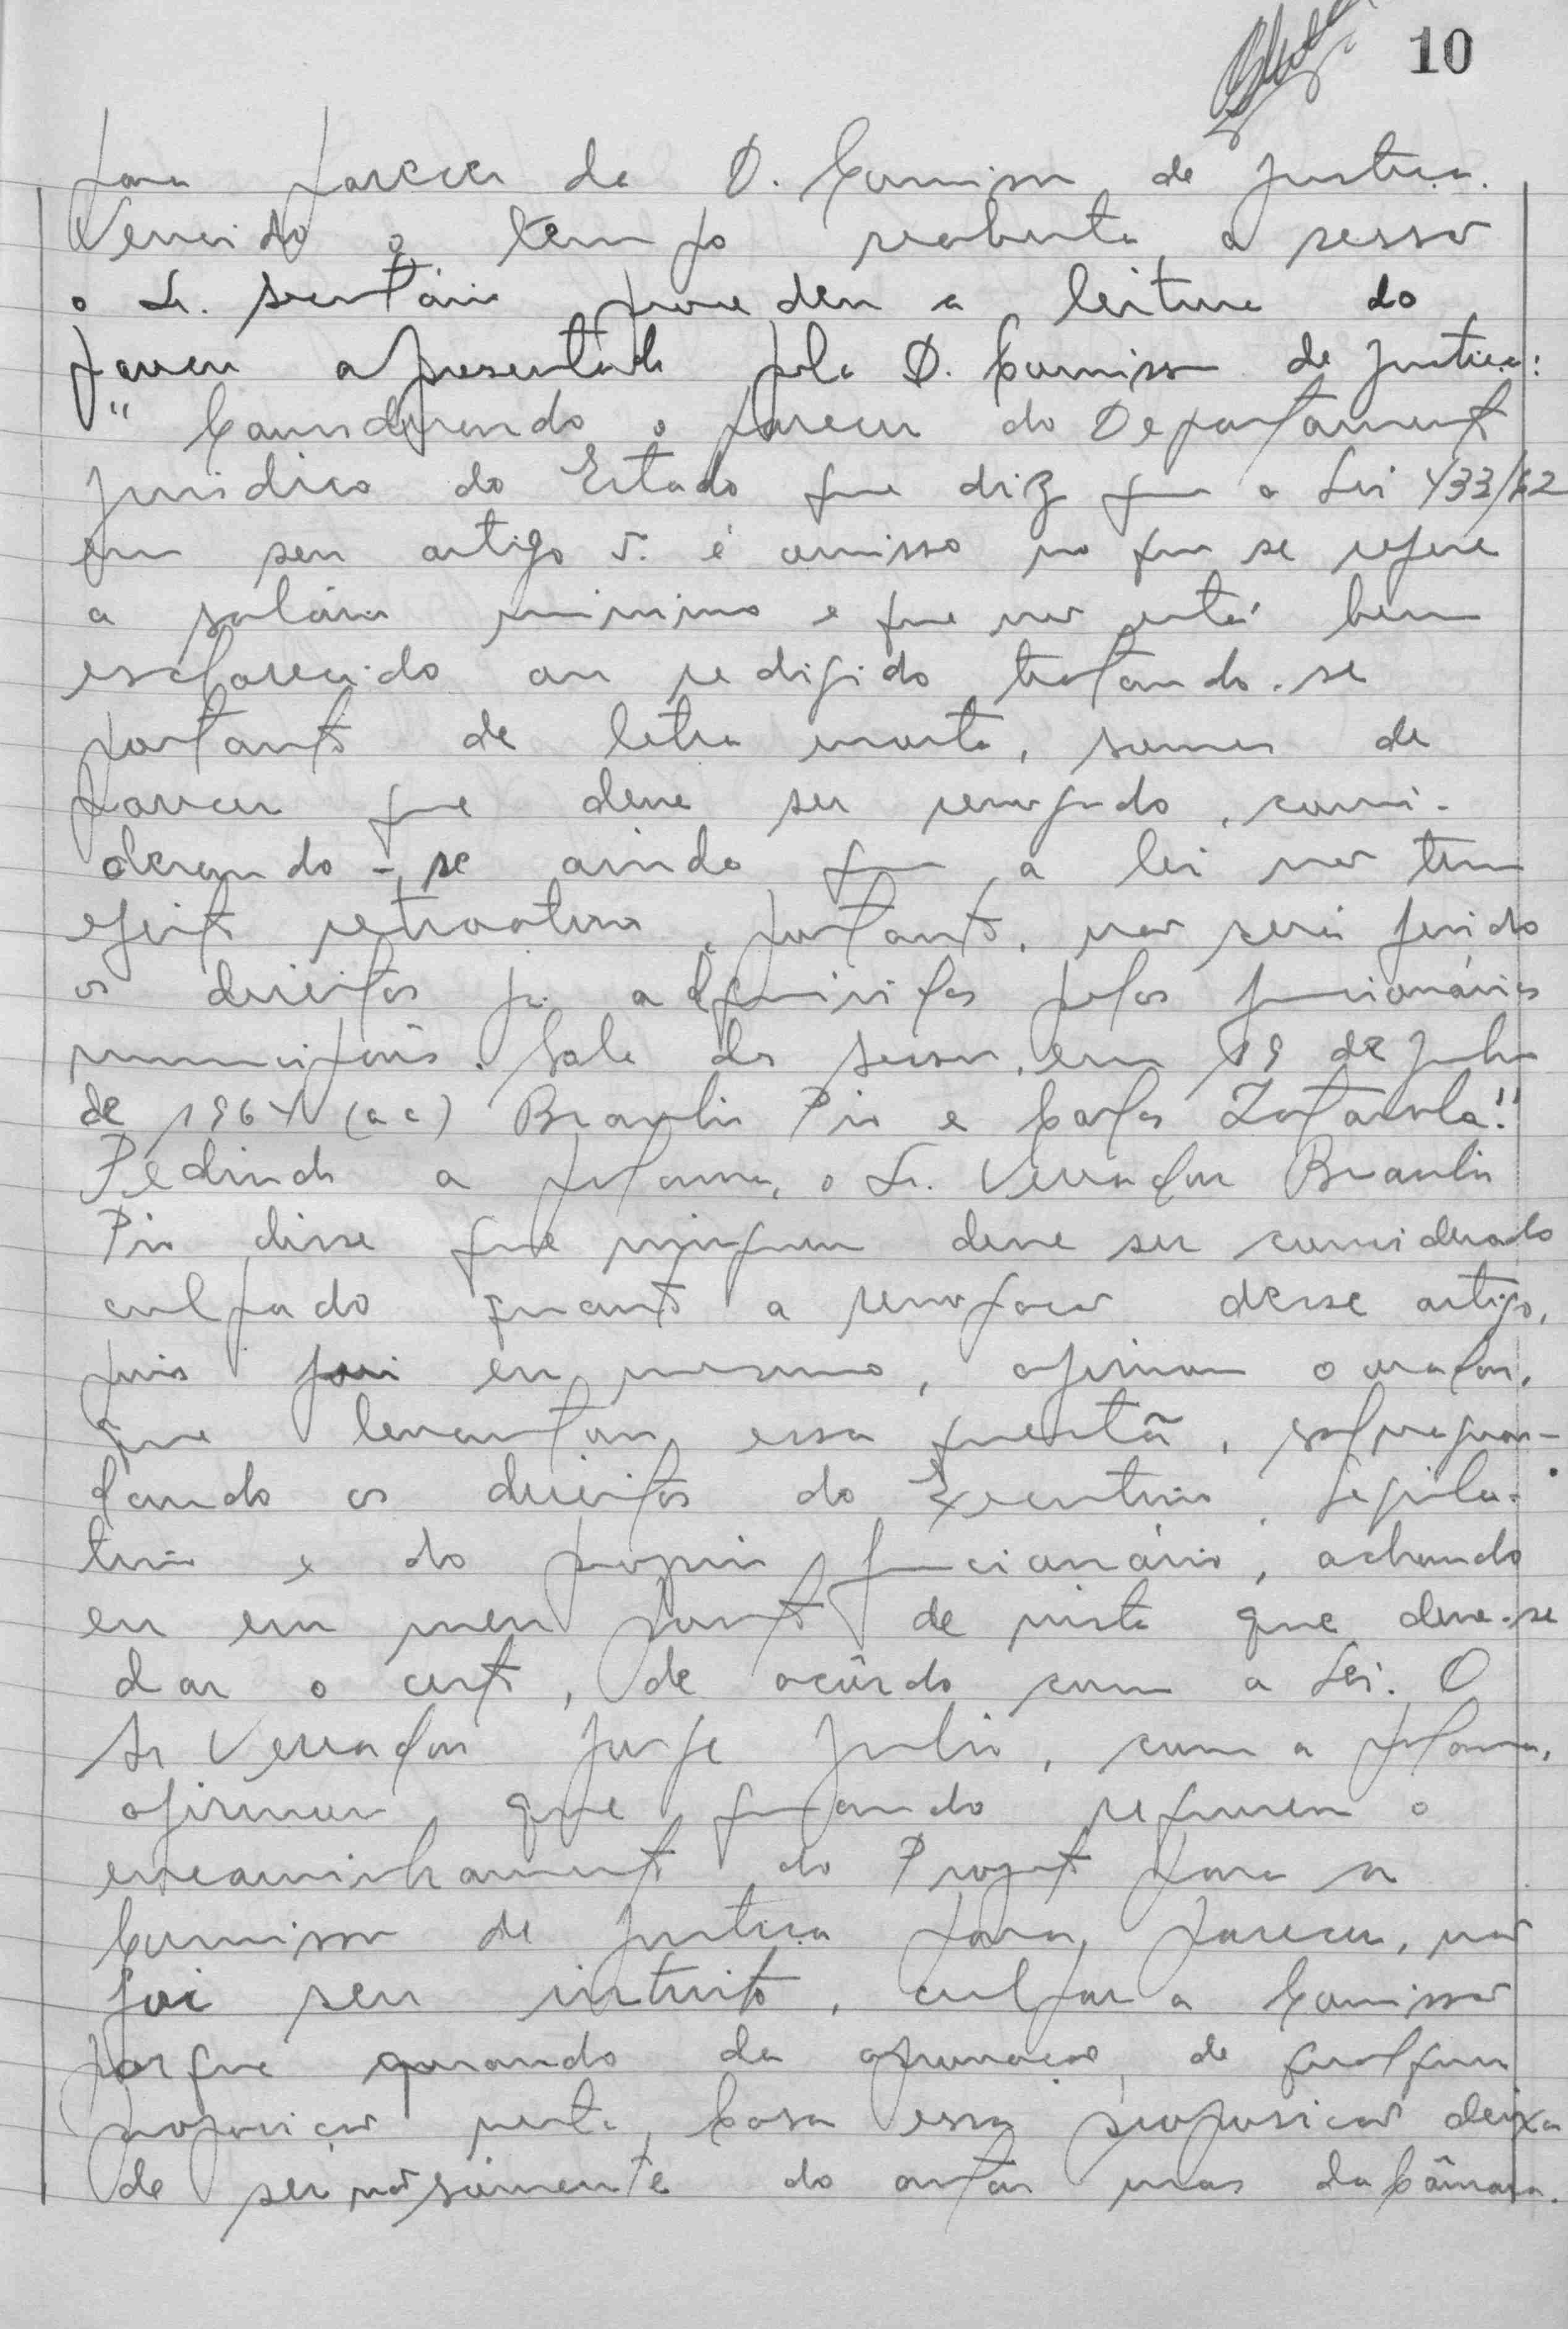 10
para parecer da D. Comissão de Justiça.
Vencido o tempo reaberta a sessão
o Sr. secretário procedeu a leitura do
parecer apresentado pela D. Comissão de Justiça:
" Considerando o parecer do Departamento
Juridico do Estado que diz que a Lei 433/62
em seu artigo 5º é omisso no que se refere
a salário minimo e que não está bem
esclarecido ou redigido tratando-se
portanto de letra morta, somos de
parecer que deve ser revogado, consi-
derando-se ainda que a lei não tem
efeito retroativo, portanto, não será ferido
os direitos já adquiridos pelos funcionários
municipais. Sala da sessão, em 19 de Julho
de 1964 (aa) Braulio Pio e Carlos
Pedindo a palavra, o Sr. Vereador Braulio
Pio disse que ninguem deve ser considerado
culpado quanto a revogação desse artigo,
pois foi eu mesmo, afirmou o orador,
que levantou essa questão, salvaguar-
dando os direitos do Executivo, Legisla-
tivo e do proprio funcionário, achando
eu em meu ponto de vista que deve-se
dar o certo, de acôrdo com a Lei. O
Sr Vereador Jorge Julio, com a palavra,
afirmou que quando requereu o
encaminhamento do Projeto para a
Comissão de Justiça para parecer, não
foi seu intuito, culpar a Comissão
porque quando da aprovação de qualquer
proposição nesta Casa essa proposição deixa
de ser não sómente do autor mas da Câmara.